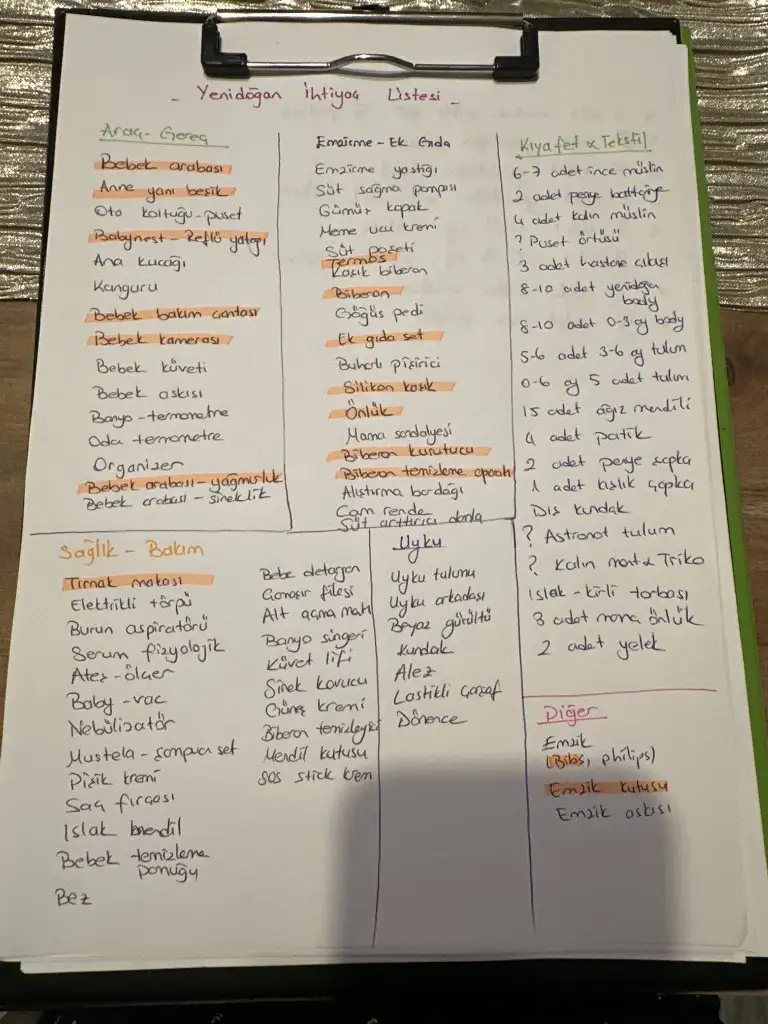 - Yenidoğan İhtiyaç Listesi -
Araç-Gereç
Bebek arabası
Anne yanı beşik
Oto koltuğu-puset
Babynest-Reflü yatağı
Ana kucağı
Kanguru
Bebek bakım çantası
Bebek kamerası
Bebek küveti
Bebek askısı
Banyo-termometre
Oda termometre
Organizer
Bebek arabası-yağmurluk
Bebek arabası-sineklik
Emzirme-Ek Gıda
Emzirme yastığı
Süt sağma pompası
Gümüş kapak
Meme ucu kremi
Süt poşeti
Termos
Kaşık biberon
Biberon
Göğüs pedi
Ek gıda set
Buharlı pişirici
Silikon kaşık
Önlük
Mama sandalyesi
Biberon kurutucu
Biberon temizleme aparatı
Alıştırma bardağı
Cam rende
Süt arttırıcı damla
Kıyafet & Tekstil
6-7 adet ince müslin
2 adet penye battaniye
4 adet kalın müslin
? Puset örtüsü
3 adet hastane çıkışı
8-10 adet yenidoğan
body
8-10 adet 0-3 ay body
5-6 adet 3-6 ay tulum
0-6 ay 5 adet tulum
15 adet ağız mendili
4 adet patik
2 adet penye şapka
1 adet kışlık şapka
Dış kundak
? Astronot tulum
? Kalın mont & Triko
Islak-kirli torbası
3 adet mama önlük
2 adet yelek
Sağlık-Bakım
Tırnak makası
Elektrikli törpü
Burun aspiratörü
Serum fizyolojik
Ateş-ölçer
Baby-vac
Nebülizatör
Mustela-şampuan set
Pişik kremi
Saç fırçası
Islak mendil
Bebek temizleme
pamuğu
Bez
Bebe deterjan
Çamaşır filesi
Alt açma matı
Banyo süngeri
Küvet lifi
Sinek kovucu
Güneş kremi
Biberon temizleyici
Mendil kutusu
SOS stick krem
Uyku
Uyku tulumu
Uyku arkadaşı
Beyaz gürültü
Kundak
Alez
Lastikli çarşaf
Dönence
Diğer
Emzik
(Bibs, philips)
Emzik kutusu
Emzik askısı